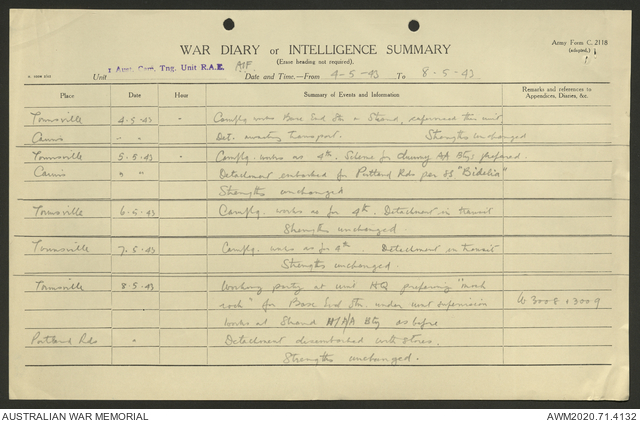 Army Form C. 2118
(adapted.)
WAR DIARY or INTELLIGENCE SUMMARY
(Erase heading not required).
Unit 1 Aust. Cam. Tng. Unit R.A.E. AIF
Date and Time.—From 4-5-43 To 8-5-43
Place Date Hour Summary of Events and Information Remarks and references to Appendices, Diaries, &c.
Townsville 4-5-43 Camflg. works Base Stn Strand, this unit
Cairns " " Det. awaiting transport. Strengths unchanged
Townsville 5-5-43 Camflg. works as 4th. Scheme for AA Btys prepared.
Cairns " " Detachment embarked for Portland Rds per SS "Bidelia"
Strengths unchanged
Townsville 6-5-43 Camflg. works as for 4th. Detachment in transit
Strengths unchanged.
Townsville 7-5-43 Camflg. works as for 4th. Detachment in transit
Strengths unchanged.
Townsville 8-5-43 Working party at unit HQ preparing "mock
rock" for Base Stn. under unit supervision W 3008 + 3009
Works at Strand H/A/A Bty as before
Portland Rds " Detachment disembarked with stores.
Strengths unchanged.
AUSTRALIAN WAR MEMORIAL AWM2020.71.4132